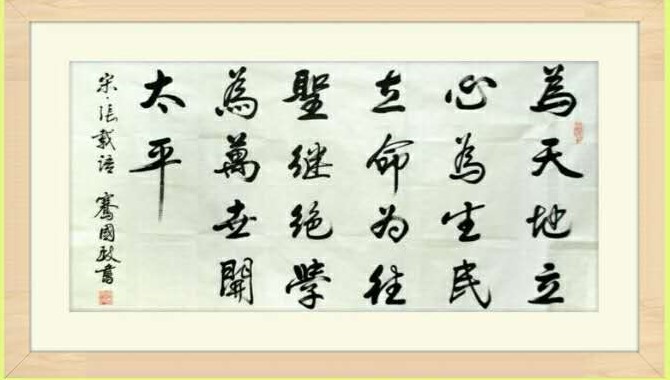 為天地立
心為生民
立命为往
聖继绝學
為萬世開
太平
宋·張載語 騫國政書